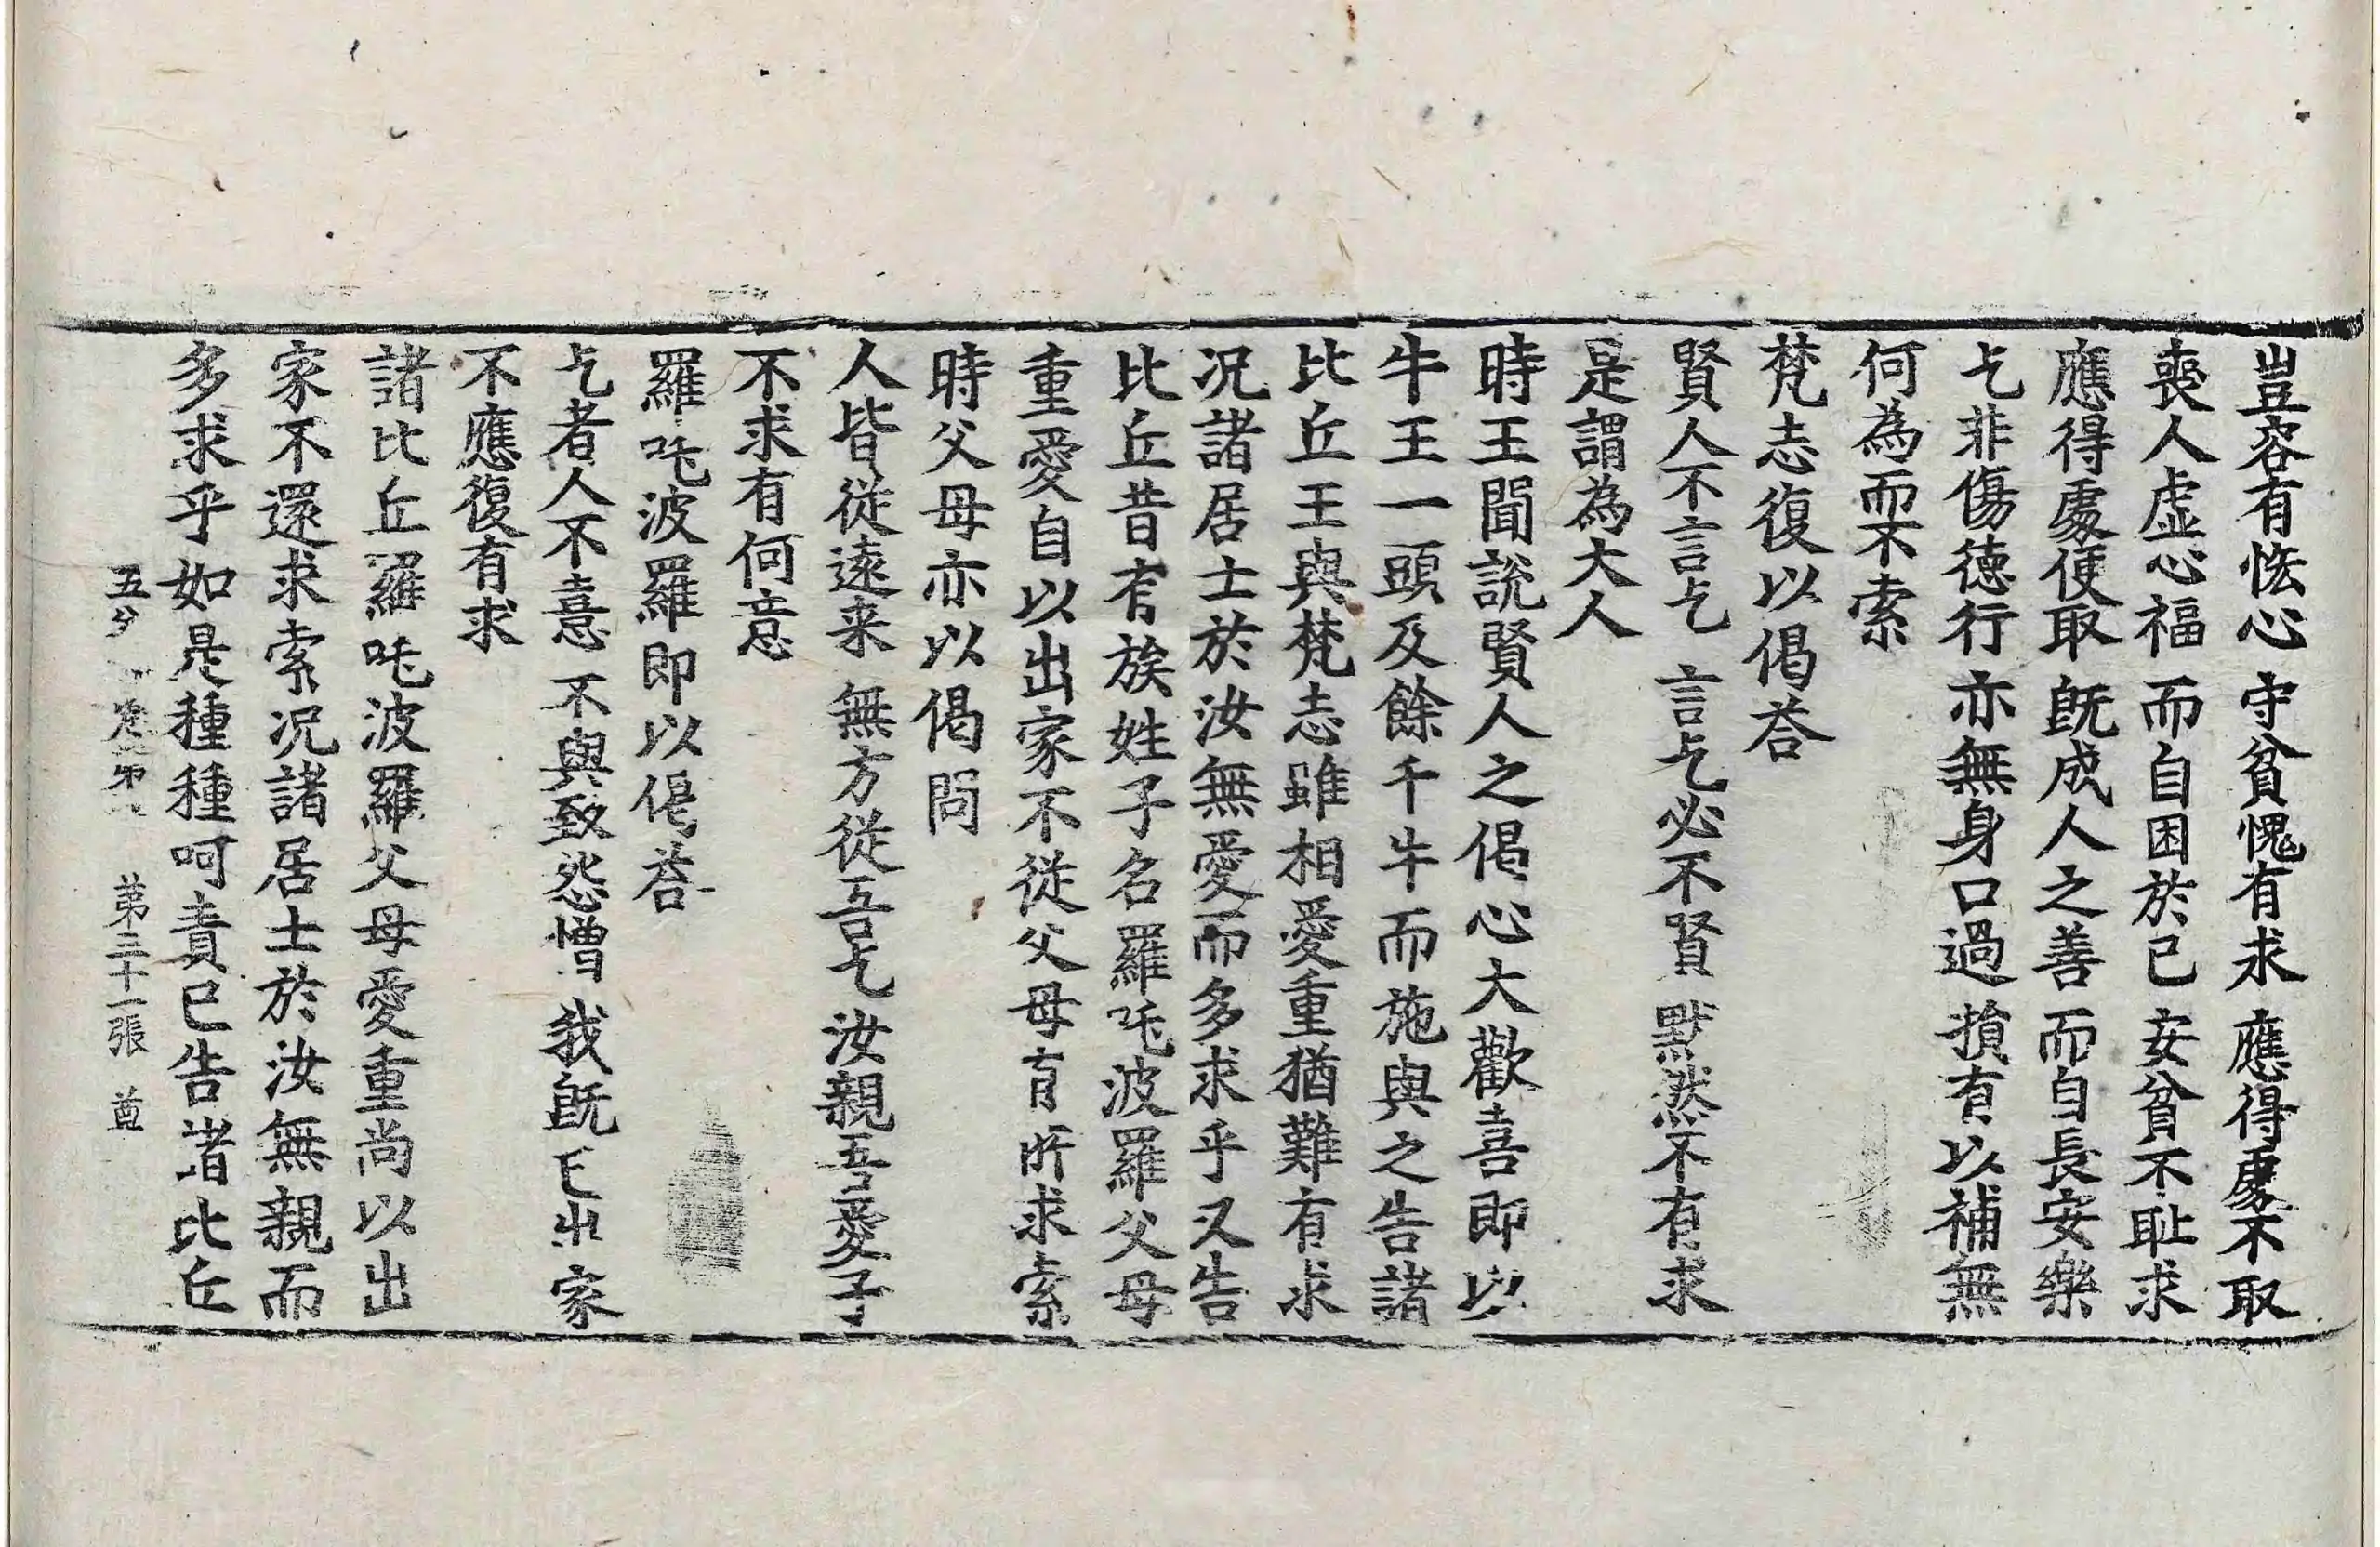 豈容有悋心 守貧愧有求 應得處不取
喪人虛心福 而自困於已 安貧不耻求
應得處便取 旣成人之善 而自長安樂
乞非傷德行 亦無身口過 損有以補無
何為而不索
梵志復以偈荅
賢人不言乞 言乞必不賢 默然不有求
是謂為大人
時王聞說賢人之偈心大歡喜即以
牛王一頭及餘千牛而施與之告諸
比丘王與梵志雖相愛重猶難有求
况諸居士於汝無愛而多求乎又告
比丘昔有族姓子名羅吒波羅父母
重愛自以出家不從父母有所求索
時父母亦以偈問
人皆從遠来 無方從吾乞 汝親吾愛子
不求有何意
羅吒波羅即以偈荅
乞者人不憙 不與致怨憎 我旣已出家
不應復有求
諸比丘羅吒波羅父母愛重尚以出
家不還求索况諸居士於汝無親而
多求乎如是種種呵責已告諸比丘
五夕 第三十一張